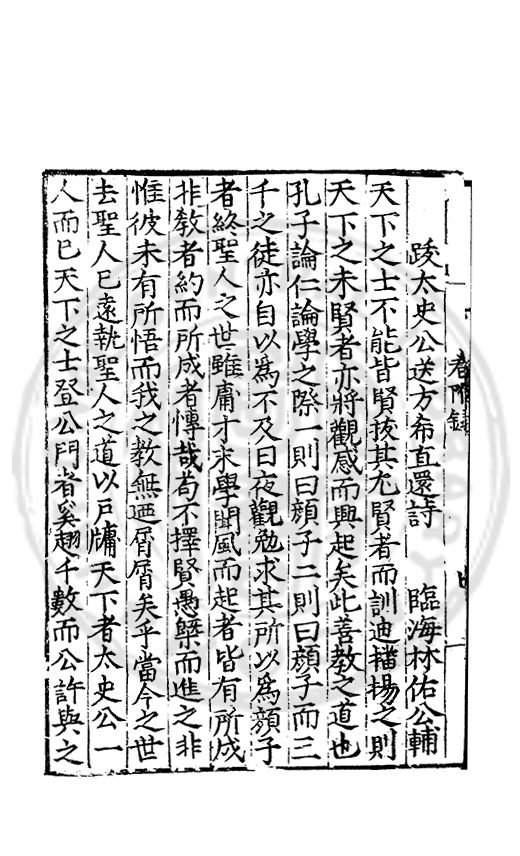 跋太史公送方希直還詩　臨海林佑公輔
天下之士不能皆賢拔其尤賢者而訓迪播揚之則
天下之未賢者亦將觀感而興起矣此善教之道也
孔子論仁論學之際一則曰顔子二則曰顔子而三
千之徒亦自以爲不及日夜觀勉求其所以爲顔子
者終聖人之世雖庸才末學聞風而起者皆有所成
非敎者約而所成者慱哉苟不擇賢愚槩而進之非
惟彼未有所悟而我之教無廼屑屑矣乎當今之世
去聖人已遠執聖人之道以戸牖天下者太史公一
人而已天下之士登公門者奚翅千數而公許與之